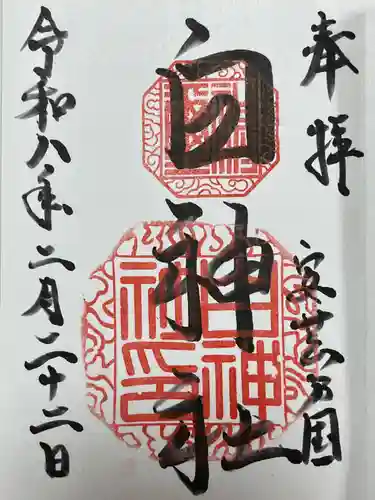 奉拝
安芸乃国
白神社
令和八年二月二十二日